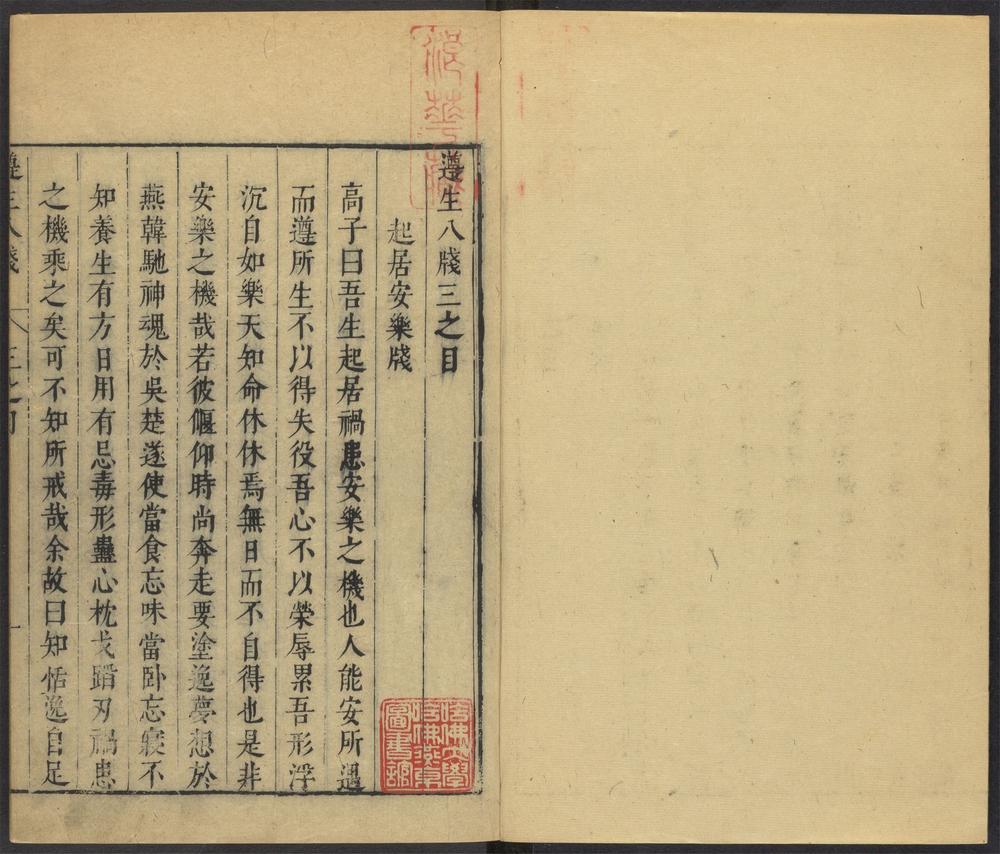 遵生八牋三之目
起居安樂牋
高子曰吾生起居禍患安樂之機也人能安所遇
而遵所生不以得失役吾心不以榮辱累吾形浮
沉自如樂天知命休休焉無日而不自得也是非
安樂之機哉若彼偃仰時尚奔走要塗逸夢想於
燕韓馳神魂於吳楚遂使當食忘味當卧忘寢不
知養生有方日用有忌毒形蠱心枕戈蹈刃禍患
之機乘之矣可不知所戒哉余故曰知恬逸自足
遵生八牋
三之目
一
哈佛大學
哈佛燕京
圖書館